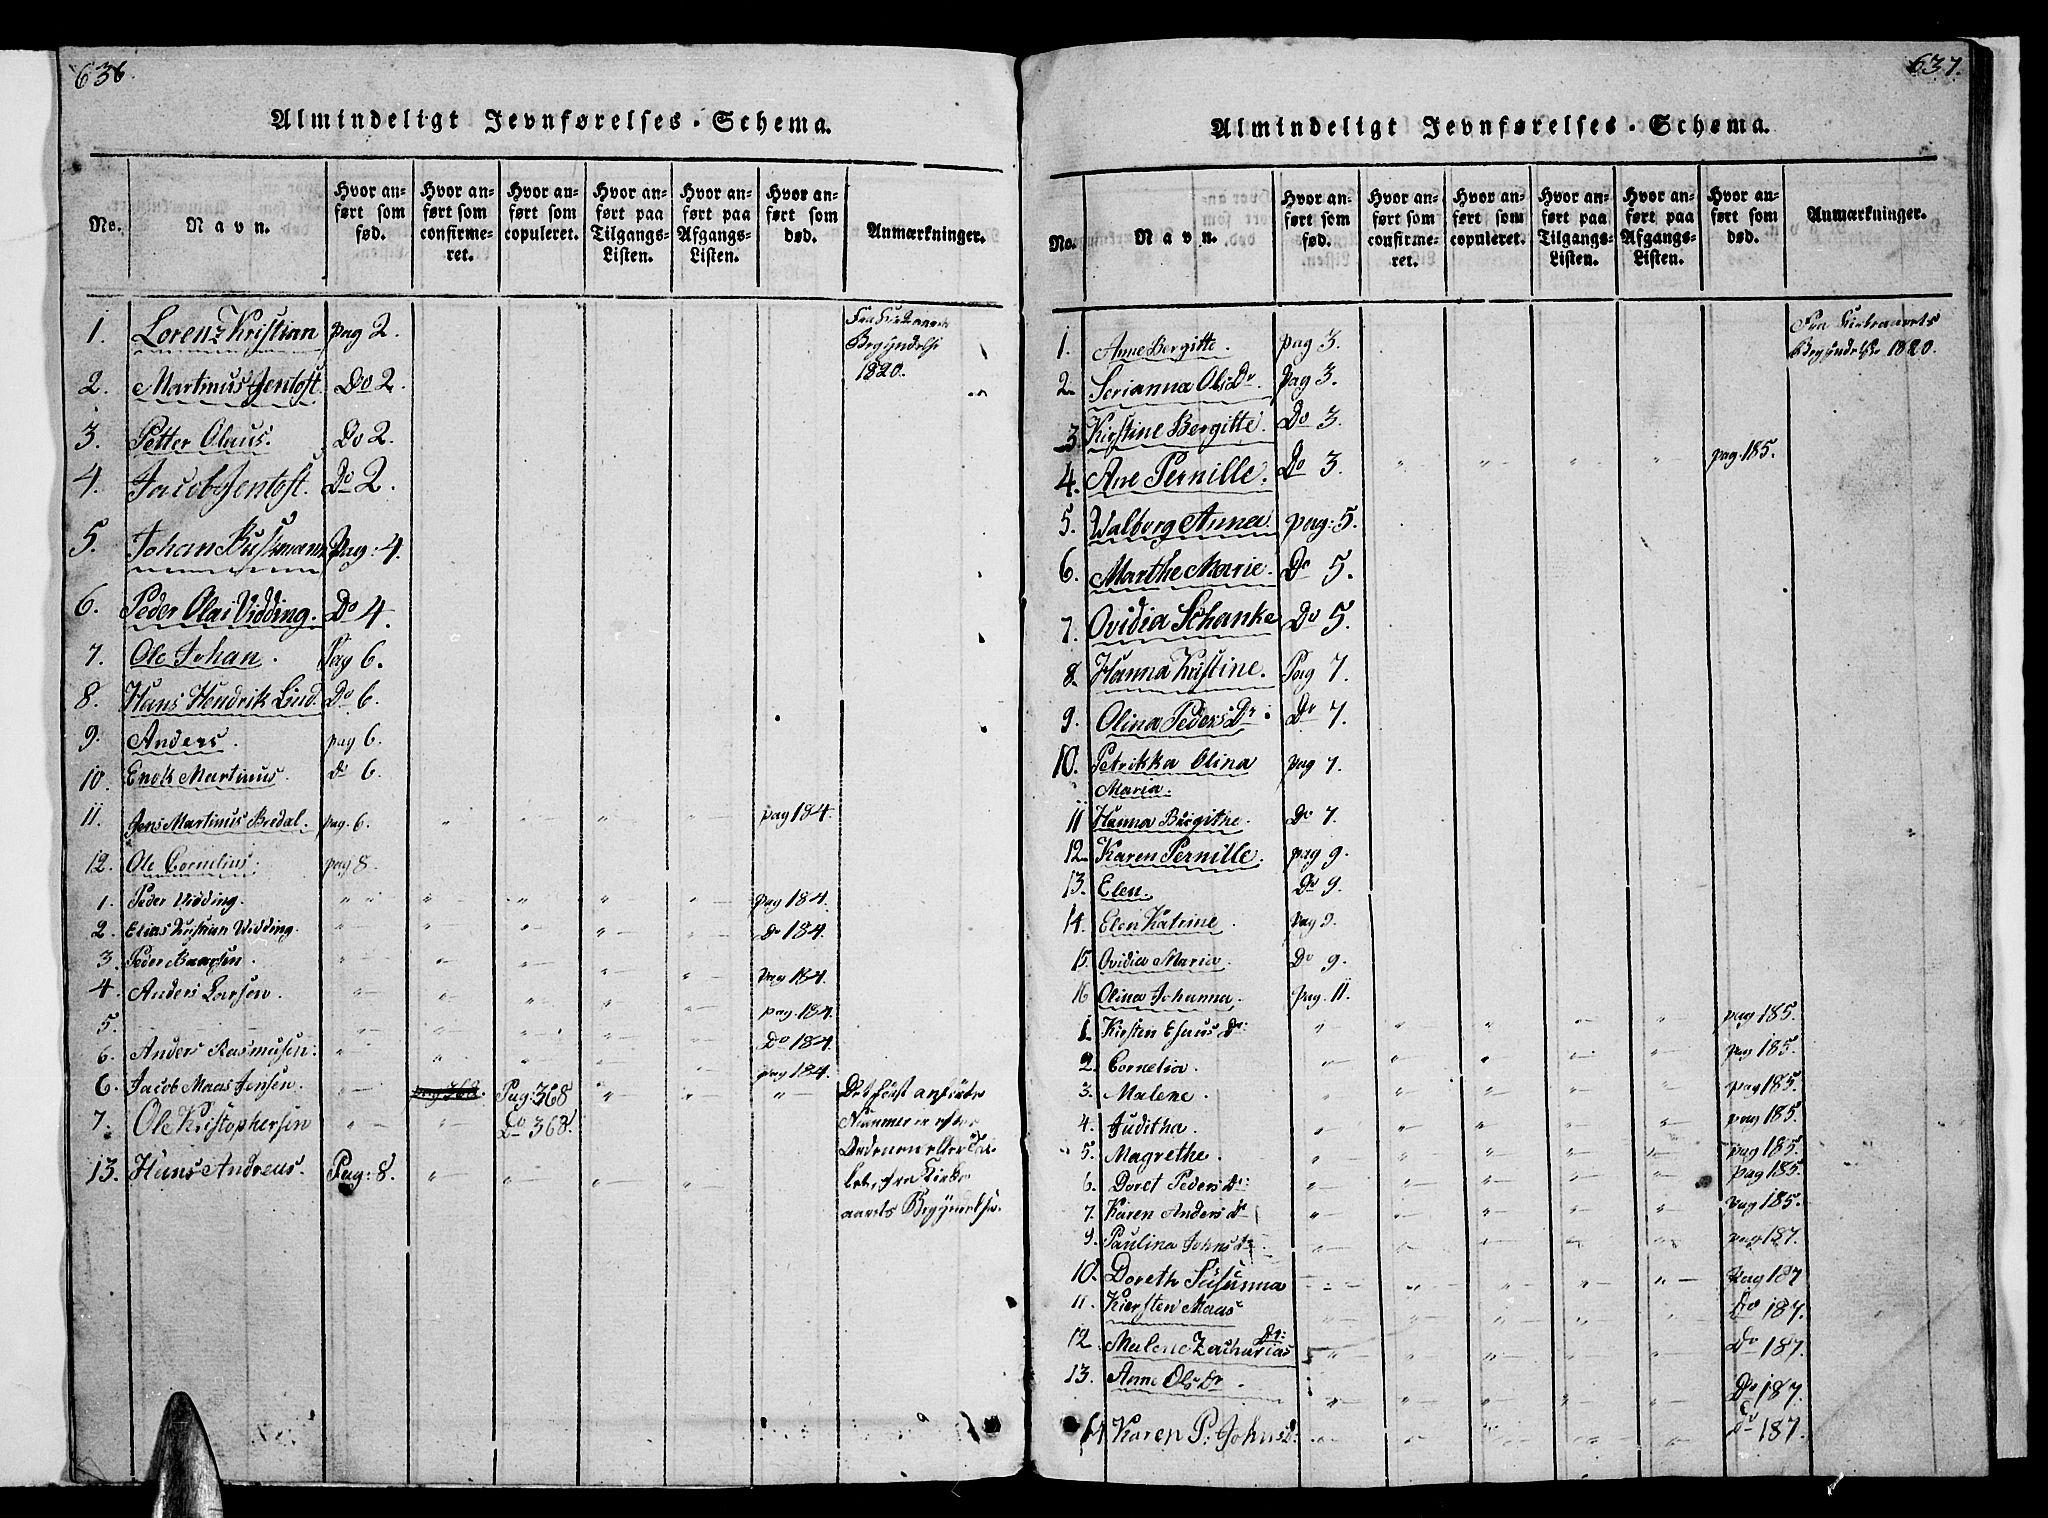 636.
Almindeligt Jevnførelses-Schema.
No.
Navn.
Hvor an-
ført som
fød.
Hvor an-
ført som
confirme-
ret.
Hvor an-
ført som
copuleret.
Hvor an-
ført paa
Tilgangs-
Listen.
Hvor an-
ført paa
Afgangs-
Listen.
Hvor an-
ført som
død.
Anmærkninger.
1. Lorenz Kristian pag 2. Fra Kirkeaarets
Begyndelse
1820.
2. Martinus Jentoft. Do 2.
3. Petter Olaus. Do 2.
4. Jacob Jentoft. Do 2.
5. Johan Buschmann Pag: 4.
6. Peder Olai Vidding. Do 4.
7. Ole Johan. Pag 6.
8. Hans Hendrik Lind. Do 6.
9. Anders. pag 6.
10. Enok Martinus. do 6.
11. Jens Martinus Bredal. pag. 6. " " " " pag 184.
12. Ole Cornelius. pag 8.
1. Peder Vidding. " " " " " pag 184.
2. Elias Kristian Vidding. " " " " " Do 184.
3. Peder Baarsen. " " " " " pag 184.
4. Anders Larsen. " " " " " pag. 184.
5. " " " " " Do 184.
6. Anders Rasmusen. " " " " " pag 184.
6. Jacob Maas Jensen. " pag 368. Pag: 368 " " " Det først anførte
7. Ole Kristophersen " " Do 368. Nummer er efter
Dødenes eller
13. Hans Andreas. Pag: 8. " " " " fra Kirke
aarets Begyndelse.
637.
Almindeligt Jevnførelses-Schema.
No.
Navn.
Hvor an-
ført som
fød.
Hvor an-
ført som
confirme-
ret.
Hvor an-
ført som
copuleret.
Hvor an-
ført paa
Tilgangs-
Listen.
Hvor an-
ført paa
Afgangs-
Listen.
Hvor an-
ført som
død.
Anmærkninger.
1. Anne Bergitte. pag 3. Fra Kirkeaarets
Begyndelse 1820.
2. Serianna Ols Dr. Pag 3.
3. Kirstine Bergitte. Do 3.
4. Ane Pernille. Do 3. " " " " pag. 185.
5. Walborg Anna. pag: 5.
6. Marthe Marie. Do 5.
7. Ovidia Schanke Do 5.
8. Hanna Kristine. Pag 7.
9. Olina Peders Dr. Do 7.
10. Petrikka Olina pag 7.
Maria.
11 Hanna Birgithe. Do 7.
12. Karen Pernille. pag 9.
13. Elen. Do 9.
14. Elen Katrine. Pag 9.
15. Ovidia Maria. Do 9.
16 Olina Johanna. pag. 11.
1. Kirsten Esaus Dr: " " " " " pag 185.
2. Cornelia. " " " " " pag 185.
3. Malene. " " " " " pag 185.
4. Juditha. " " " " " pag 185.
5. Magrethe. " " " " " pag 185.
6. Doret Peders Dr: " " " " " pag 185.
7. Karen Anders Dr " " " " " pag 185.
9. Paulina Johns Dr " " " " " pag 187.
10. Doreth Susanna " " " " " Pag 187
11. Kiersten Maas " " " " " Do 187.
12. Malene Zacharias Dr: " " " " " Do 187.
13. Anne Ols Dr. " " " " " Do 187.
14 Karen P. Johns D: " " " " " Do 187.